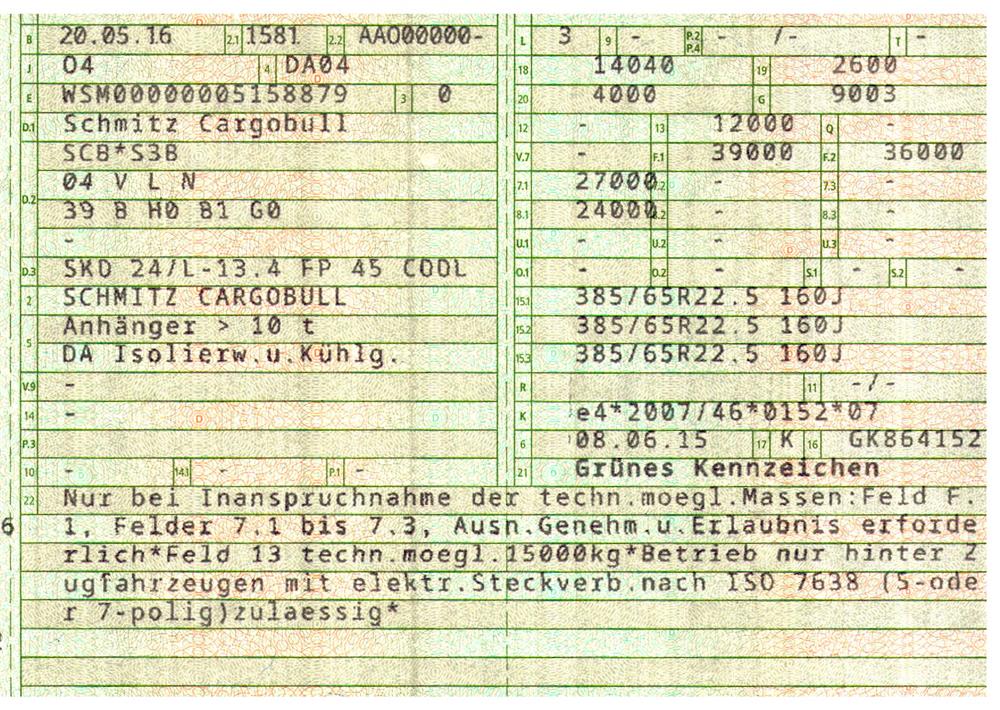 B 20.05.16 2.1 1581 2.2 AAO00000-
J 04 4 DA04
E WSM00000005158879 3 0
D.1 Schmitz Cargobull
SCB*S3B
04 V L N
D.2 39 B H0 B1 G0
-
D.3 SKO 24/L-13.4 FP 45 COOL
2 SCHMITZ CARGOBULL
Anhänger > 10 t
5 DA Isolierw.u.Kühlg.
V.9 -
14 -
P.3
10 - 14.1 - P.1 -
L 3 9 - P.2 P.4 - /- T -
18 14040 19 2600
20 4000 G 9003
12 - 13 12000 Q -
V.7 - F.1 39000 F.2 36000
7.1 27000 7.2 - 7.3 -
8.1 24000 8.2 - 8.3 -
U.1 - U.2 - U.3 -
O.1 - O.2 - S.1 - S.2 -
15.1 385/65R22.5 160J
15.2 385/65R22.5 160J
15.3 385/65R22.5 160J
R 11 -/-
K e4*2007/46*0152*07
6 08.06.15 17 K 16 GK864152
21 Grünes Kennzeichen
22 Nur bei Inanspruchnahme der techn.moegl.Massen:Feld F.
6 1, Felder 7.1 bis 7.3, Ausn.Genehm.u.Erlaubnis erforde
rlich*Feld 13 techn.moegl.15000kg*Betrieb nur hinter Z
ugfahrzeugen mit elektr.Steckverb.nach ISO 7638 (5-ode
r 7-polig)zulaessig*